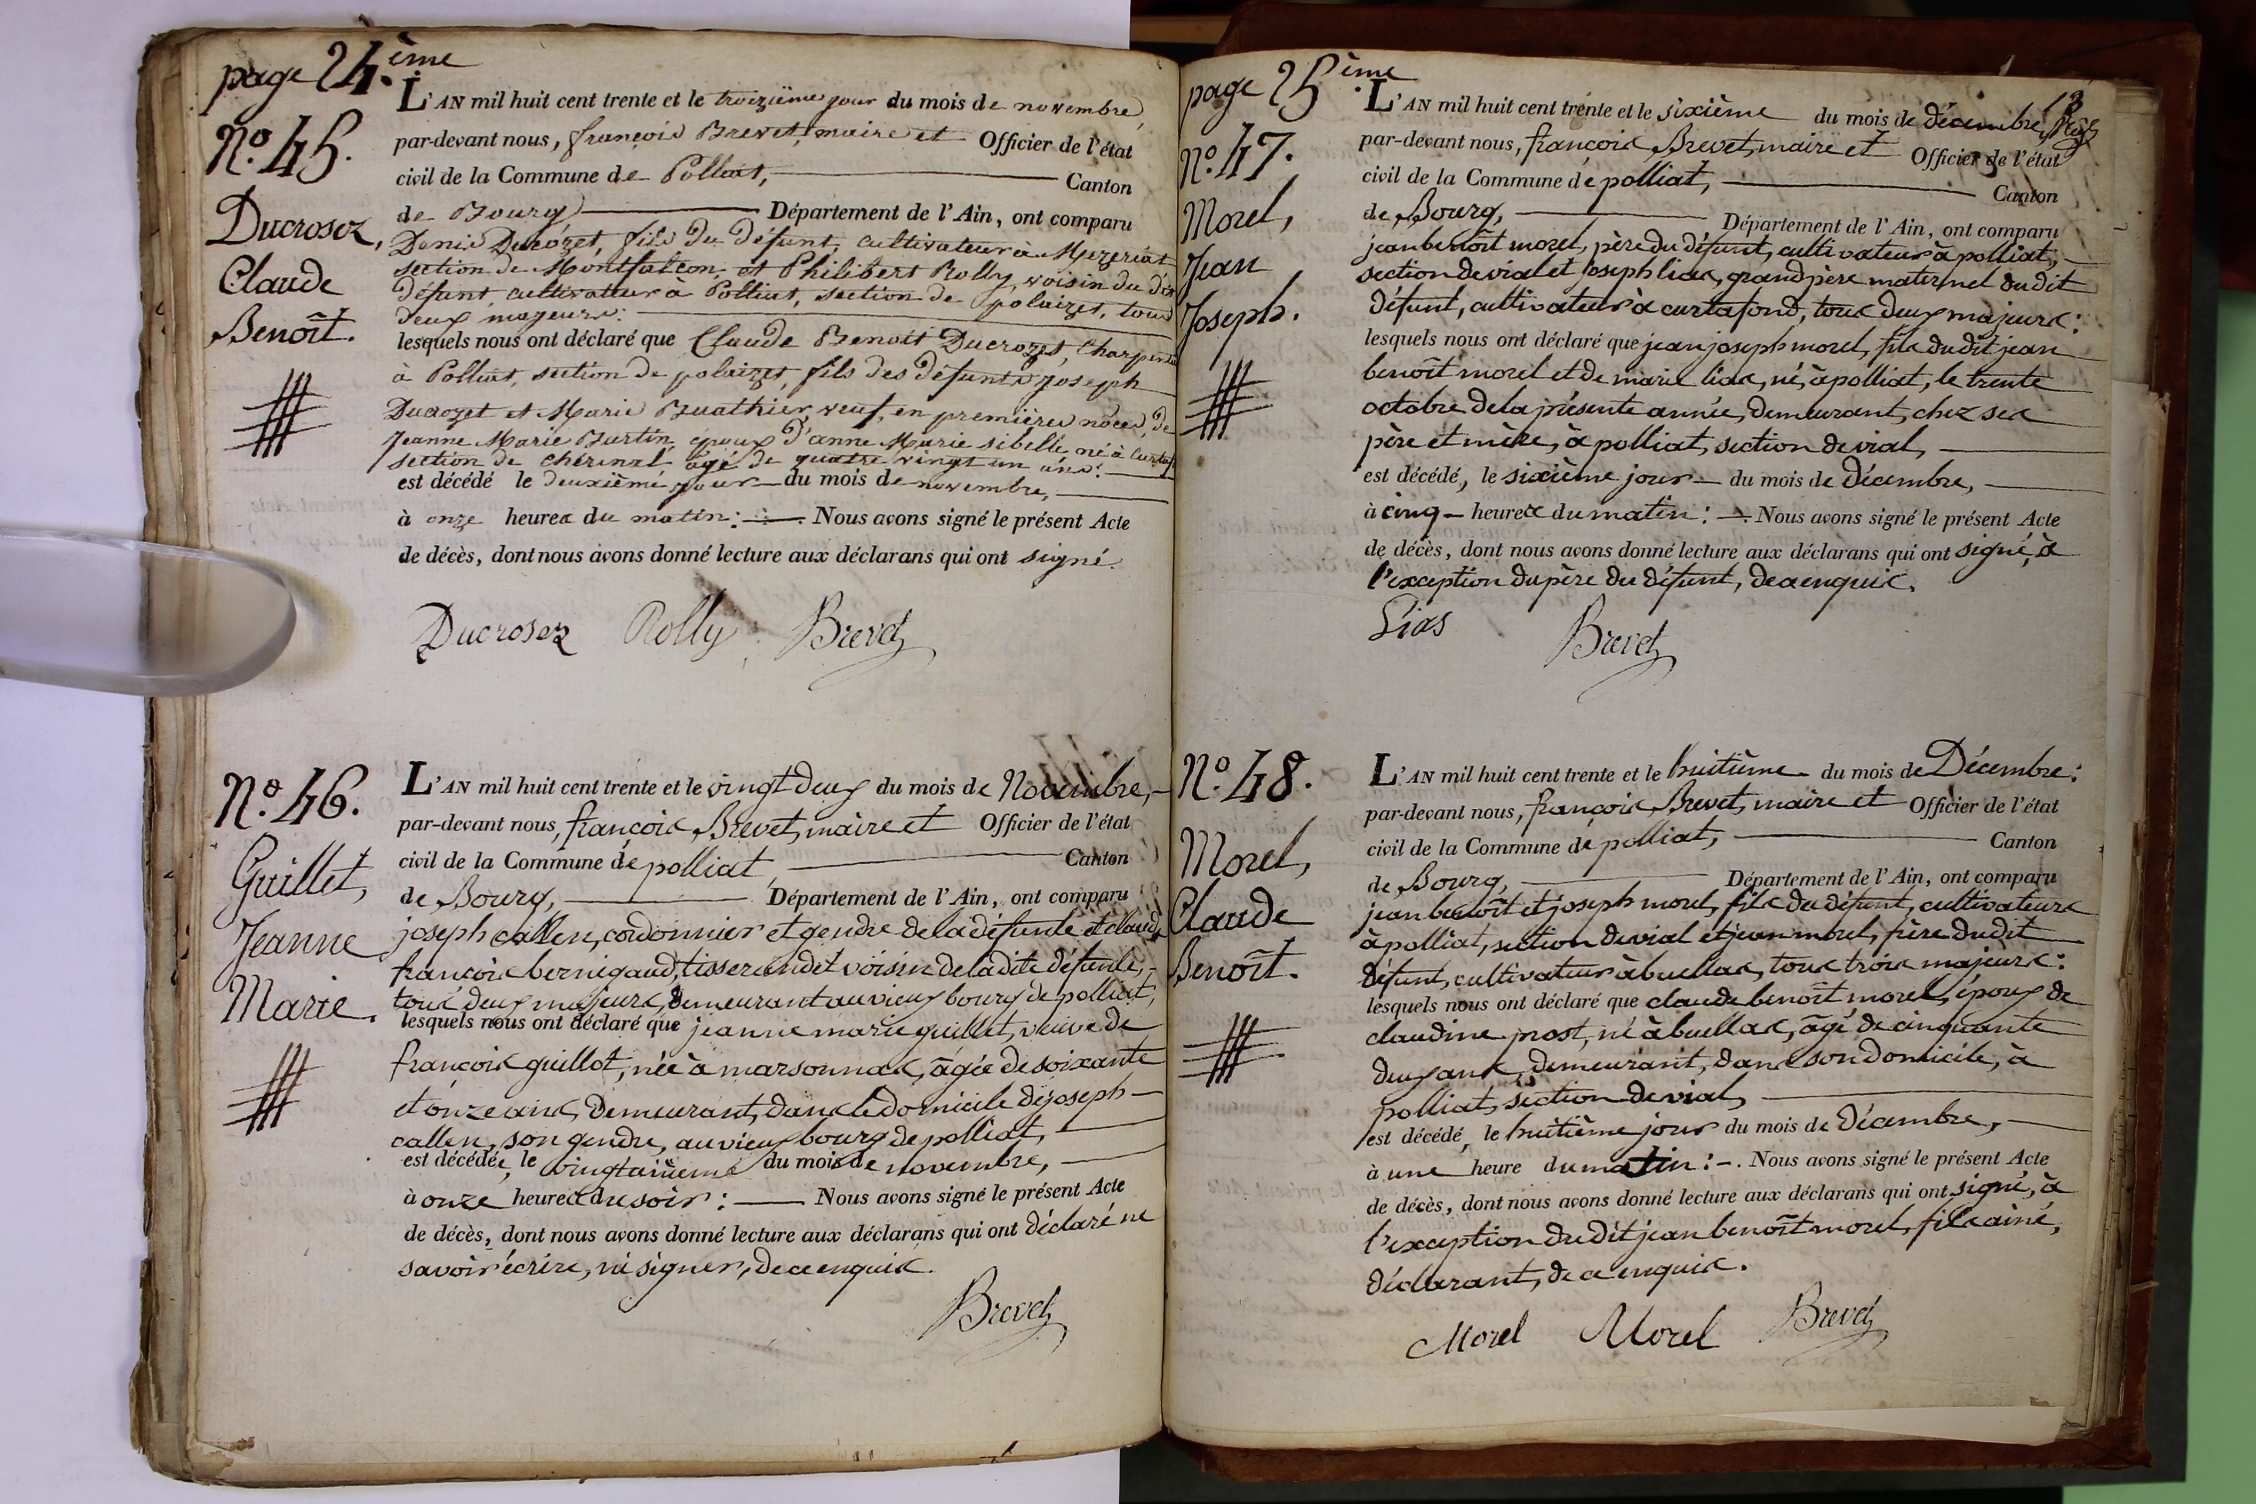 page 24.ème
N.º 45.
Ducrosez,
Claude
Benoît.
L'AN mil huit cent trente et le troizième jour du mois de novembre,
par-devant nous, françois Brevet, maire et Officier de l'état
civil de la Commune de Polliat, Canton
de Bourg Département de l'Ain, ont comparu
Denis Ducrozet, fils du défunt, cultivateur à Mezeriat
section de Montfalcon, et Philibert Rolly, voisin du dit
défunt, cultivateur à Polliat, section de polaizet, tous
deux majeurs:
lesquels nous ont déclaré que Claude Benoit Ducrozet, Charpentier
à Polliat, section de polaizet, fils des défunts joseph
Ducrozet et Marie Buathier, veuf, en premières nôces, de
Jeanne Marie Burtin, époux d'anne Marie sibelle, né à
section de chérinal âgé de quatre vingt un ans:
est décédé le deuxième jour du mois de novembre,
à onze heures du matin: Nous avons signé le présent Acte
de décès, dont nous avons donné lecture aux déclarans qui ont signé.
Ducrosez Rolly Brevet
N.º 46.
Guillet,
Jeanne
Marie.
L'AN mil huit cent trente et le vingt deux du mois de Novembre,
par-devant nous, françois Brevet, maire et Officier de l'état
civil de la Commune de polliat, Canton
de Bourg, Département de l'Ain, ont comparu
joseph callen, cordonnier et gendre de la défunte et claude
françois bernigaud, tisserand et voisin de la dite défunte,
tous deux majeurs, demeurant au vieux bourg de polliat,
lesquels nous ont déclaré que jeanne marie guillet, veuve de
françois guillot, née à marsonnas, âgée de soixante
et onze ans, demeurant, dans le domicile de joseph
callen, son gendre, au vieux bourg de polliat,
est décédée, le vingtaineme du mois de novembre,
à onze heures du soir: Nous avons signé le présent Acte
de décès, dont nous avons donné lecture aux déclarans qui ont déclaré ne
savoir écrire, ni signer, de ce enquis.
Brevet
page 25ème
N.º 47.
Morel,
Jean
Joseph.
L'AN mil huit cent trente et le sixième du mois de décembre,
par-devant nous, françois Brevet, maire et Officier de l'état
civil de la Commune de polliat, Canton
de Bourg, Département de l'Ain, ont comparu
jean benoît morel, père du défunt, cultivateur à polliat,
section de vial et joseph lias, grand père maternel du dit
défunt, cultivateur à curtafond, tous deux majeurs:
lesquels nous ont déclaré que jean joseph morel, fils du dit jean
benoît morel et de marie lias, né, à polliat, le trente
octobre de la présente année, demeurant, chez ses
père et mère, à polliat, section de vial,
est décédé, le sixième jour du mois de Décembre,
à cinq heures du matin: Nous avons signé le présent Acte
de décès, dont nous avons donné lecture aux déclarans qui ont signé, à
l'exception du père du défunt, de ce enquis.
Lias Brevet
N.º 48.
Morel,
Claude
Benoît.
L'AN mil huit cent trente et le huitième du mois de Décembre:
par-devant nous, françois Brevet, maire et Officier de l'état
civil de la Commune de polliat, Canton
de Bourg, Département de l'Ain, ont comparu
jean benoît et joseph morel, fils du défunt, cultivateurs
à polliat, section de vial et jean morel, frère du dit
défunt, cultivateur à buellas, tous trois majeurs:
lesquels nous ont déclaré que claude benoît morel, époux de
claudine prost, né à buellas, âgé de cinquante
deux ans, demeurant, dans son domicile, à
polliat, section de vial,
est décédé, le huitième jour du mois de Décembre,
à une heure du matin: Nous avons signé le présent Acte
de décès, dont nous avons donné lecture aux déclarans qui ont signé, à
l'exception du dit jean benoît morel, fils ainé,
déclarant, de ce enquis.
Morel Morel Brevet